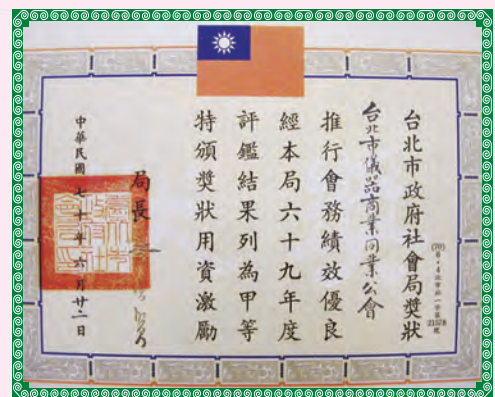 台北市政府社會局獎狀
台北市儀品商業同業公會
推行會務績效優良
經本局六十九年度
評鑑結果列為甲等
特頒獎狀用資激勵
局長
中華民國七十年六月廿二日